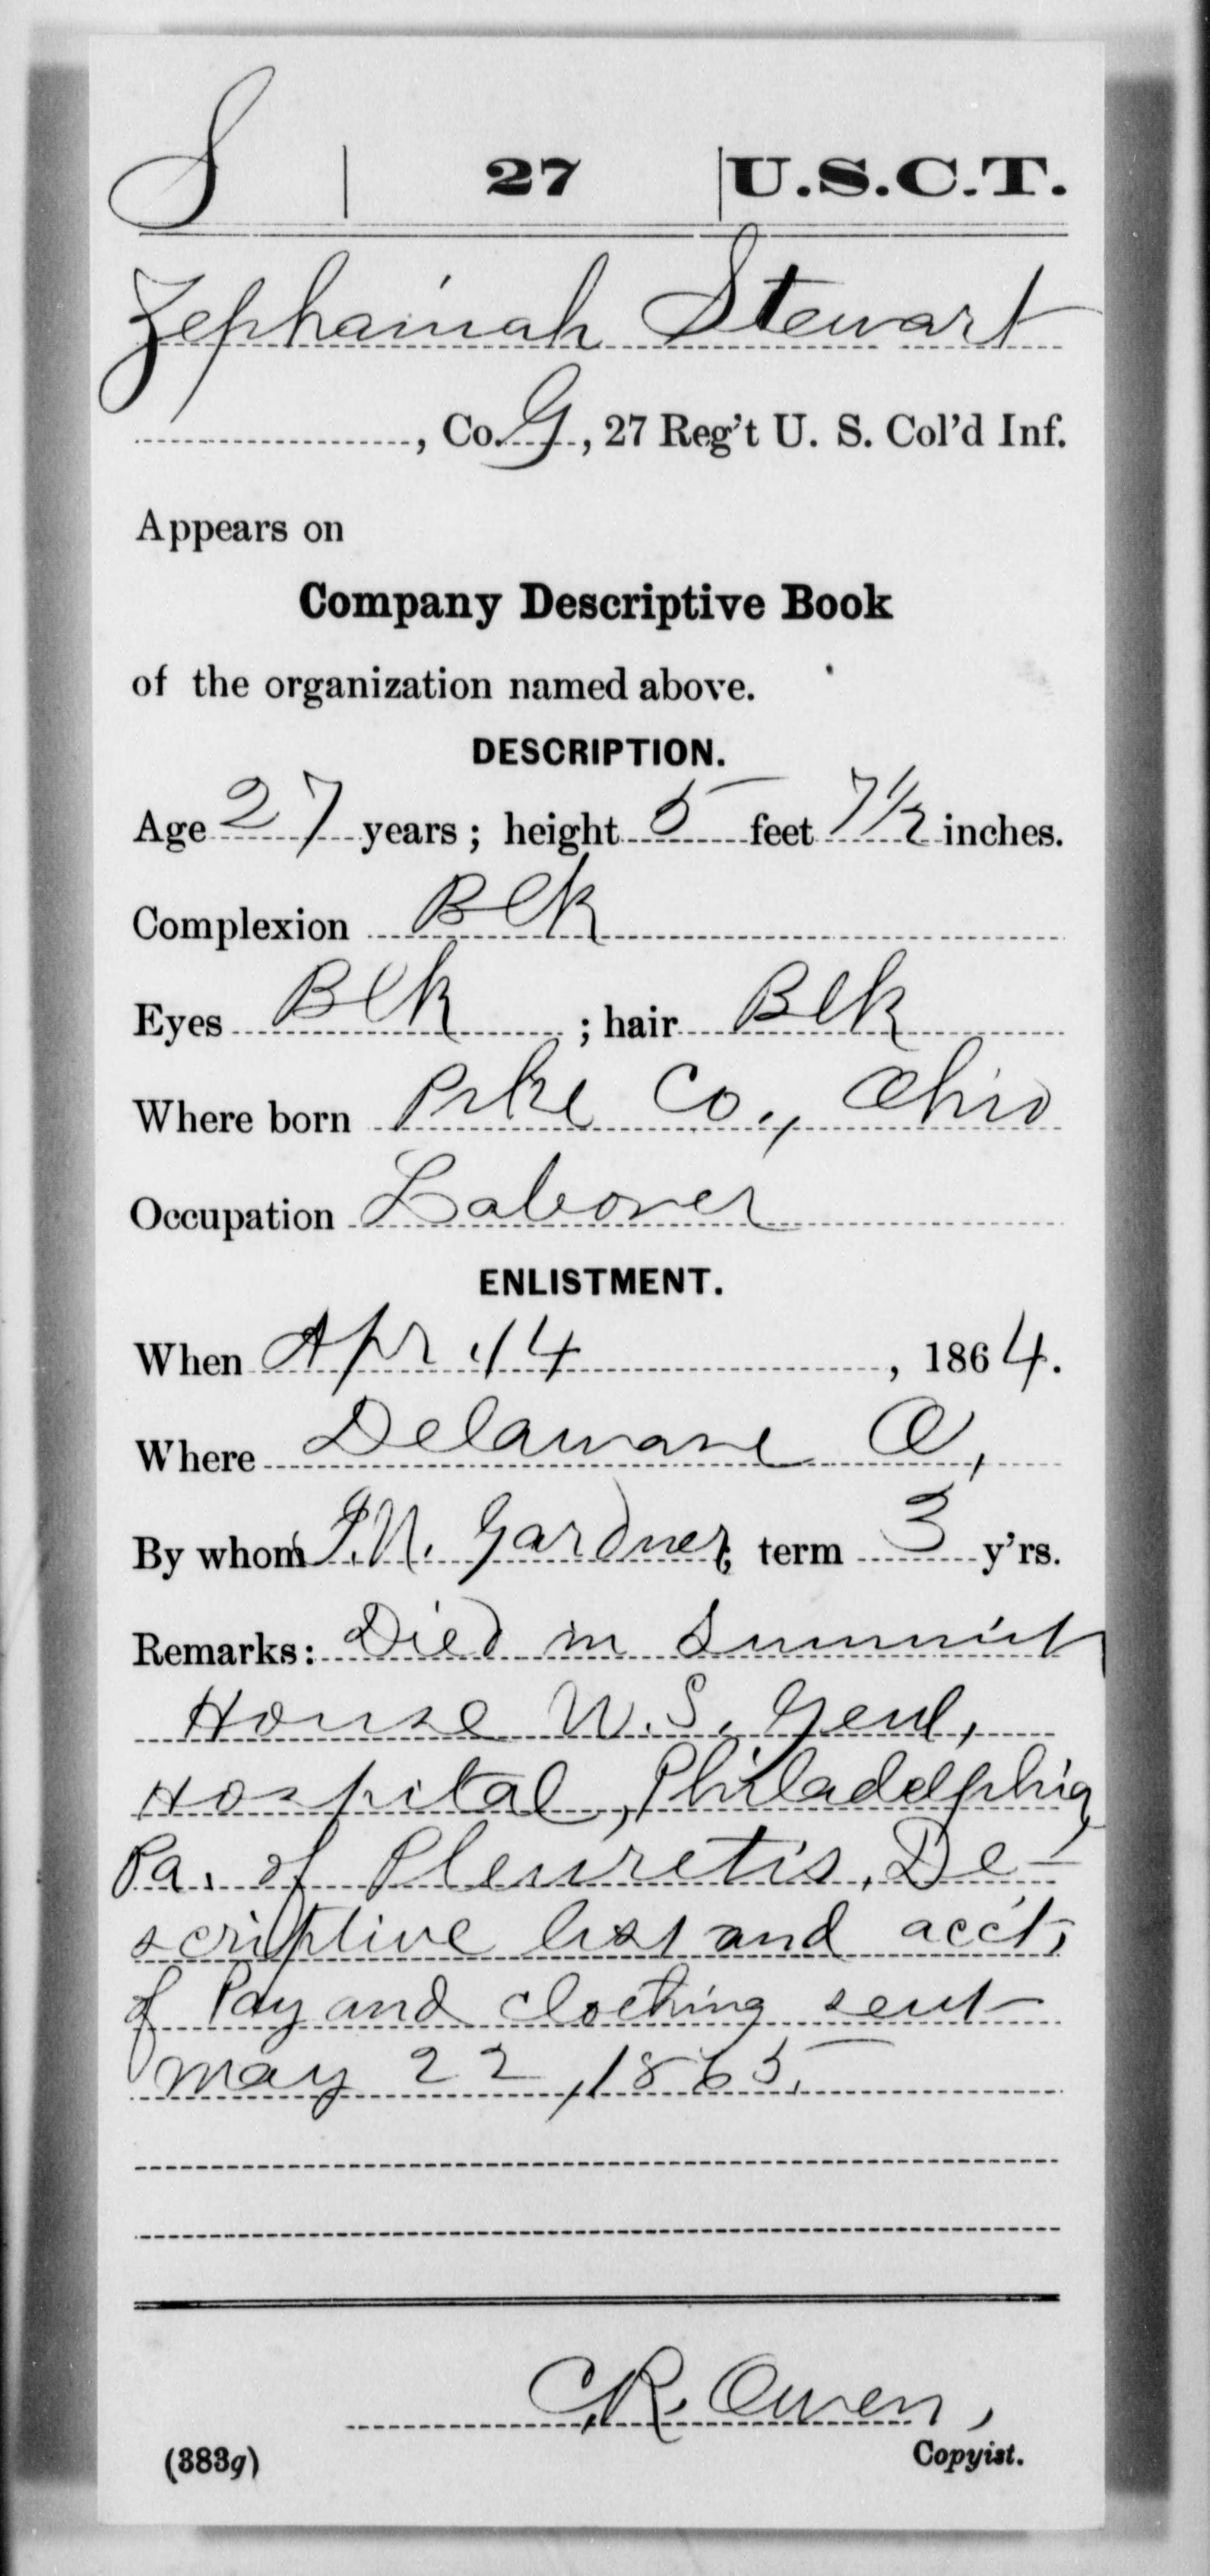 S | 27 | U.S.C.T.
Zephainah Stewart
, Co. G, 27 Reg't U. S. Col'd Inf.
Appears on
Company Descriptive Book
of the organization named above.
DESCRIPTION.
Age 27 years; height 5 feet 7½ inches.
Complexion Blk
Eyes Blk; hair Blk
Where born Pike Co., Ohio
Occupation Laborer
ENLISTMENT.
When Apr. 14, 1864.
Where Delaware O,
By whom I.N. Gardner; term 3 y'rs.
Remarks: Died in Summit
House U.S. Genl,
Hospital, Philadelphia
Pa. of Pleuretis. De-
scriptive list and acct,
of Pay and clothing sent
May 22, 1865.
C.R. Owen,
(383g) Copyist.